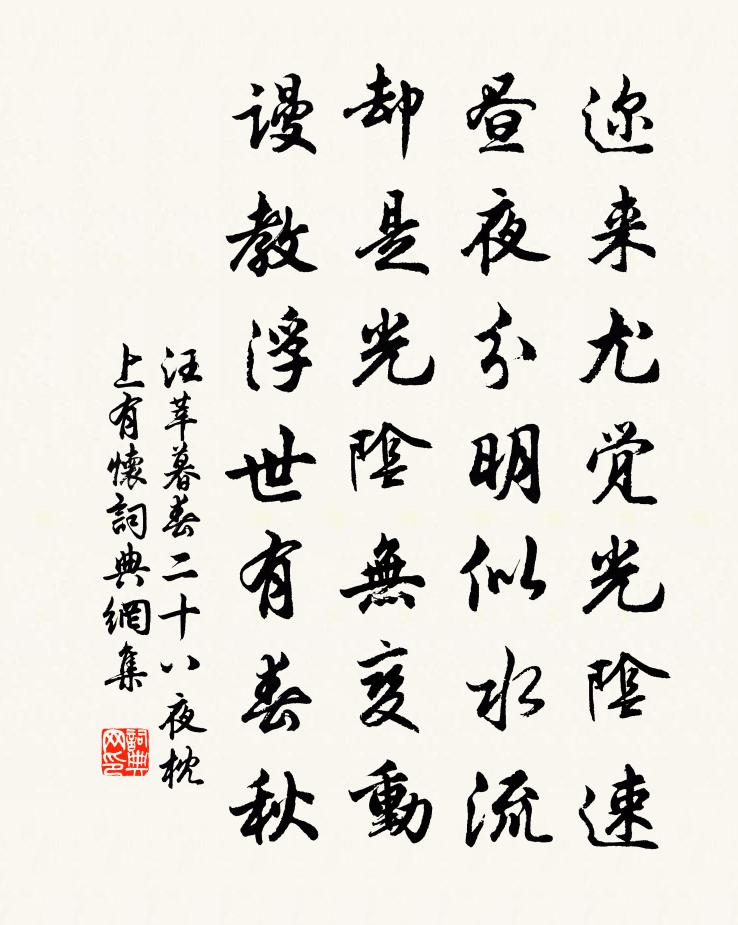 迩来尤觉光陰速
昼夜分明似水流
却是光陰無变動
谩教浮世有春秋
汪莘暮春二十八夜枕
上有懷詞典網集
詞典
网印